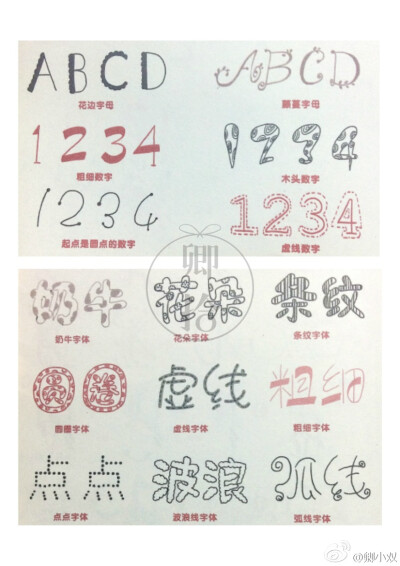 ABCD ABCD
花边字母 颤蔓字母
1234 1234
粗细数字 木头数字
1234 1234
起点是圆点的数字 虚线数字
卿
拾
奶牛 花朵 条纹
奶牛字体 花朵字体 条纹字体
圆圈 虚线 粗细
圆圈字体 虚线字体 粗细字体
点点 波浪 弧线
点点字体 波浪线字体 弧线字体
@卿小双